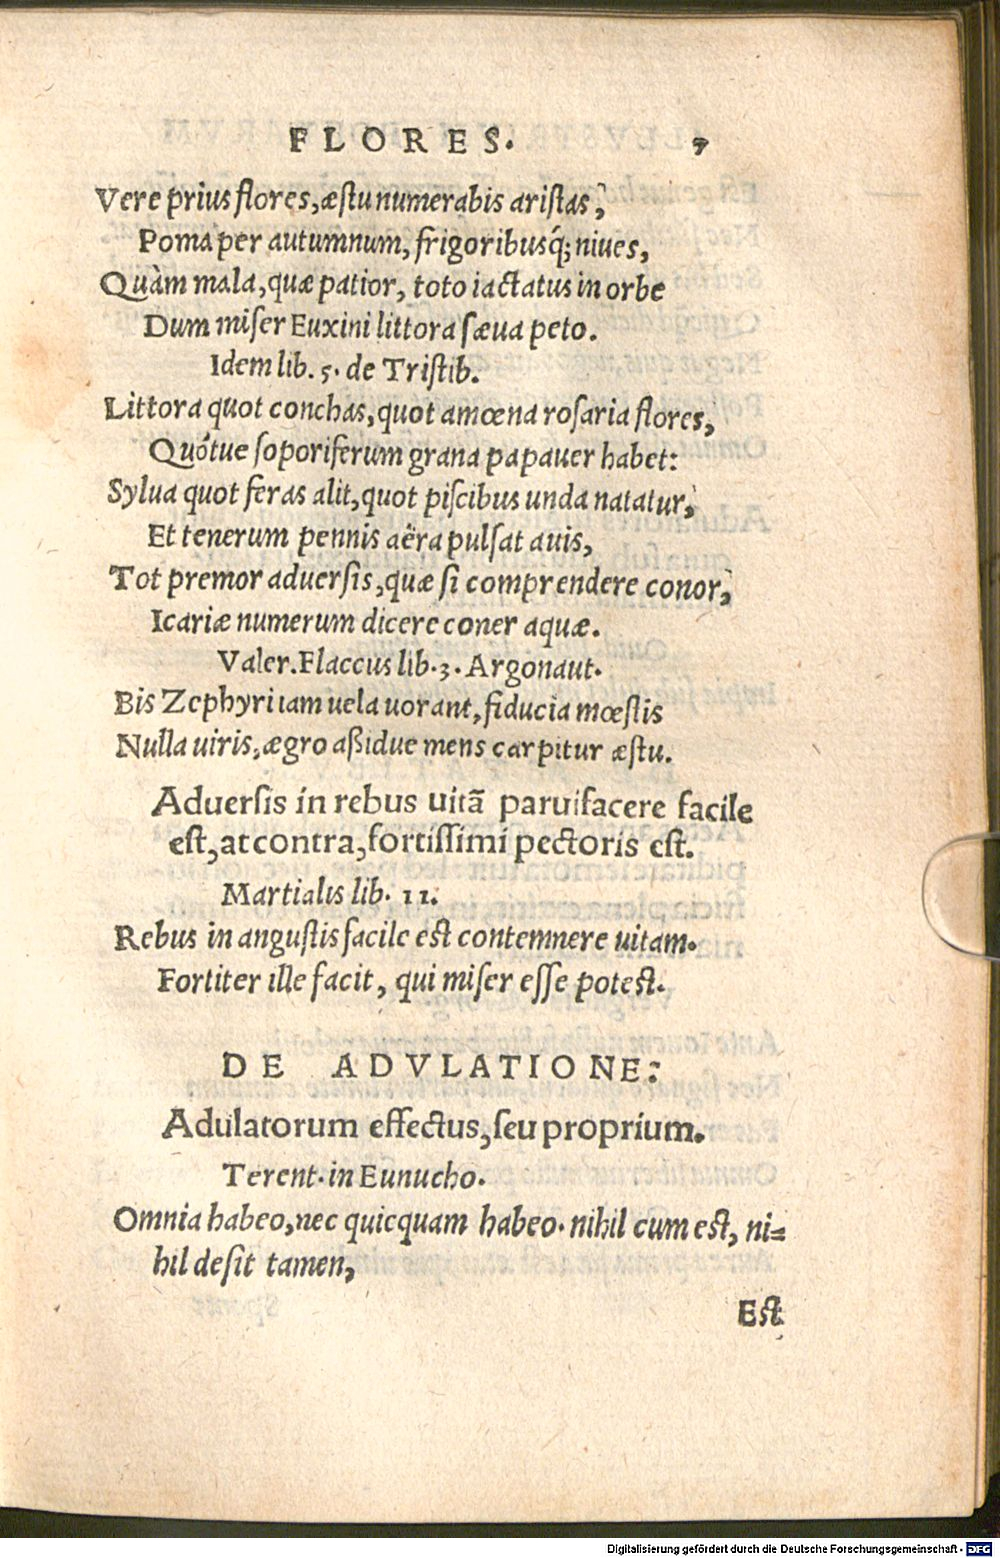 FLORES. 7
Vere prius flores, æstu numerabis aristas,
Poma per autumnum, frigoribusq́; niues,
Quàm mala, quæ patior, toto iactatus in orbe
Dum miser Euxini littora sæua peto.
Idem lib. 5. de Tristib.
Littora quot conchas, quot amœna rosaria flores,
Quótue soporiferum grana papauer habet:
Sylua quot feras alit, quot piscibus unda natatur,
Et tenerum pennis aëra pulsat auis,
Tot premor aduersis, quæ si comprendere conor,
Icariæ numerum dicere coner aquæ.
Valer. Flaccus lib. 3. Argonaut.
Bis Zephyri iam uela uorant, fiducia mœstis
Nulla uiris, ægro aßidue mens carpitur æstu.
Aduersis in rebus uitã paruifacere facile
est, at contra, fortissimi pectoris est.
Martialis lib. 11.
Rebus in angustis facile est contemnere uitam.
Fortiter ille facit, qui miser esse potest.
DE ADVLATIONE:
Adulatorum effectus, seu proprium.
Terent. in Eunucho.
Omnia habeo, nec quicquam habeo. nihil cum est, ni=
hil desit tamen,
Est
Digitalisierung gefördert durch die Deutsche Forschungsgemeinschaft - DFG